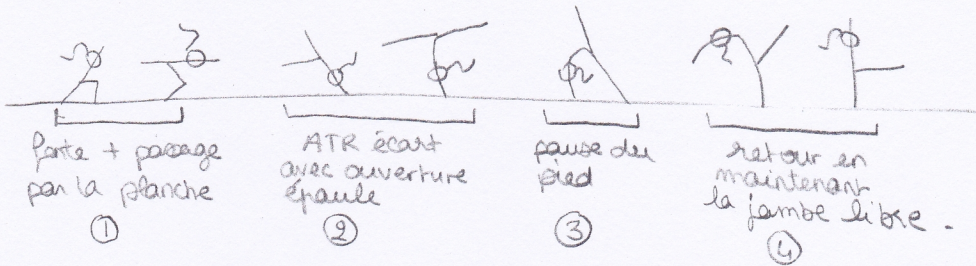 fente + passage
par la planche
①
ATR écart
avec ouverture
épaule
②
pause du
pied
③
retour en
maintenant
la jambe libre.
④